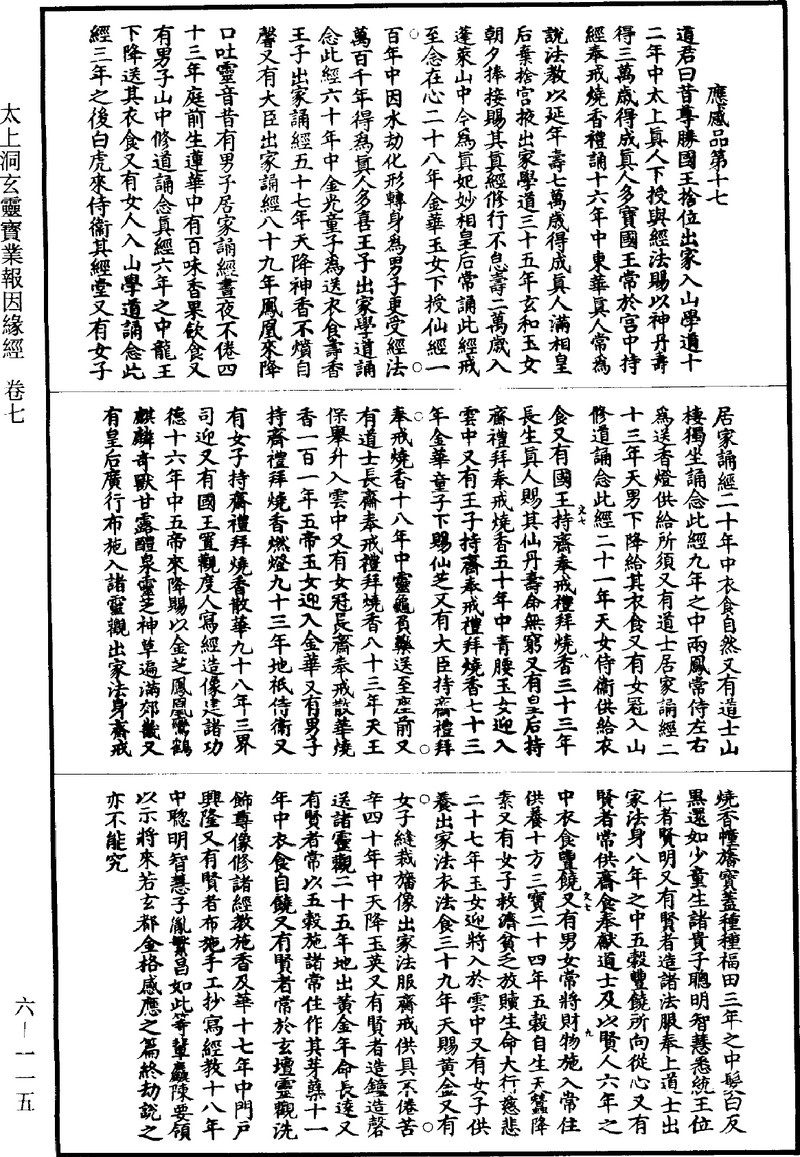 應感品第十七
道君曰昔尊勝國王捨位出家入山學道十
二年中太上眞人下授與經法賜以神丹壽
得三萬歲得成眞人多寶國王常於宫中持
經奉戒燒香禮誦十六年中東華眞人常爲
說法教以延年壽七萬歲得成眞人滿相皇
后棄捨宫掖出家學道三十五年玄和玉女
朝夕捧接賜其眞經修行不怠壽二萬歲入
蓬萊山中今爲眞妃妙相皇后常誦此經戒
至念在心二十八年金華玉女下授仙經一
百年中因水劫化形轉身爲男子更受經法
萬百千年得爲眞人多喜王子出家學道誦
念此經六十年中金光童子爲送衣食壽香
王子出家誦經五十七年天降神香不熕自
馨又有大臣出家誦經八十九年鳳凰來降
口吐靈音昔有男子居家誦經晝夜不倦四
十三年庭前生蓮華中有百味香果飲食又
有男子山中修道誦念眞經六年之中龍王
下降送其衣食又有女人入山學道誦念此
經三年之後白虎來侍衞其經堂又有女子
居家誦經二十年中衣食自然又有道士山
棲獨坐誦念此經九年之中兩鳳常侍左右
爲送香燈供給所須又有道士居家誦經二
十三年天男下降給其衣食又有女冠入山
修道誦念此經二十一年天女侍衞供給衣
食又有國王持齋奉戒禮拜燒香三十三年
長生眞人賜其仙丹壽命無窮又有皇后持
齋禮拜奉戒燒香五十年中青腰玉女迎入
雲中又有王子持齋奉戒禮拜燒香七十三
年金華童子下賜仙芝又有大臣持齋禮拜
奉戒燒香十八年中靈龜負藥送至座前又
有道士長齋奉戒禮拜燒香八十三年天王
保舉升入雲中又有女冠長齋奉戒散華燒
香一百一年五帝玉女迎入金華又有男子
持齋禮拜燒香燃燈九十三年地祇侍衞又
有女子持齋禮拜燒香散華九十八年三界
司迎又有國王置觀度人寫經造像建諸功
德十六年中五帝來降賜以金芝鳳凰鸞鶴
麒麟奇獸甘露醴泉靈芝神草遍滿郊畿又
有皇后廣行布施入諸靈觀出家法身齋戒
燒香幢旛寶蓋種種福田三年之中髮白反
黑還如少童生諸貴子聰明智慧悉統王位
仁者賢明又有賢者造諸法服奉上道士出
家法身八年之中五穀豐饒所向從心又有
賢者常供齋食奉獻道士及以賢人六年之
中衣食豐饒又有男女常將財物施入常住
供養十方三寶二十四年五穀自生天蠶降
素又有女子救濟貧乏放贖生命大行慈悲
二十七年玉女迎將入於雲中又有女子供
養出家法衣法食三十九年天賜黃金又有
女子縫裁旛像出家法服齋戒供具不倦苦
辛四十年中天降玉英又有賢者造鐘造磬
送諸靈觀二十五年地出黃金年命長遠又
有賢者常以五穀施諸常住作其芽蘖十一
年中衣食自饒又有賢者常於玄壇靈觀洗
飾尊像修諸經教施香及華十七年中門戸
興隆又有賢者布施手工抄寫經教十八年
中聰明智慧子胤繁昌如此等輩麤陳要領
以示將來若玄都金格感應之篇終劫說之
亦不能究
太上洞玄靈寶業報因緣經　卷七
六—一一五